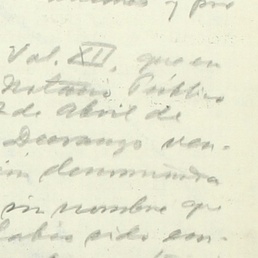 y pro
Vol. XII, que en
Notario Público
de Abril de
Deorango ven-
denominada
sin nombre que
había sido con-